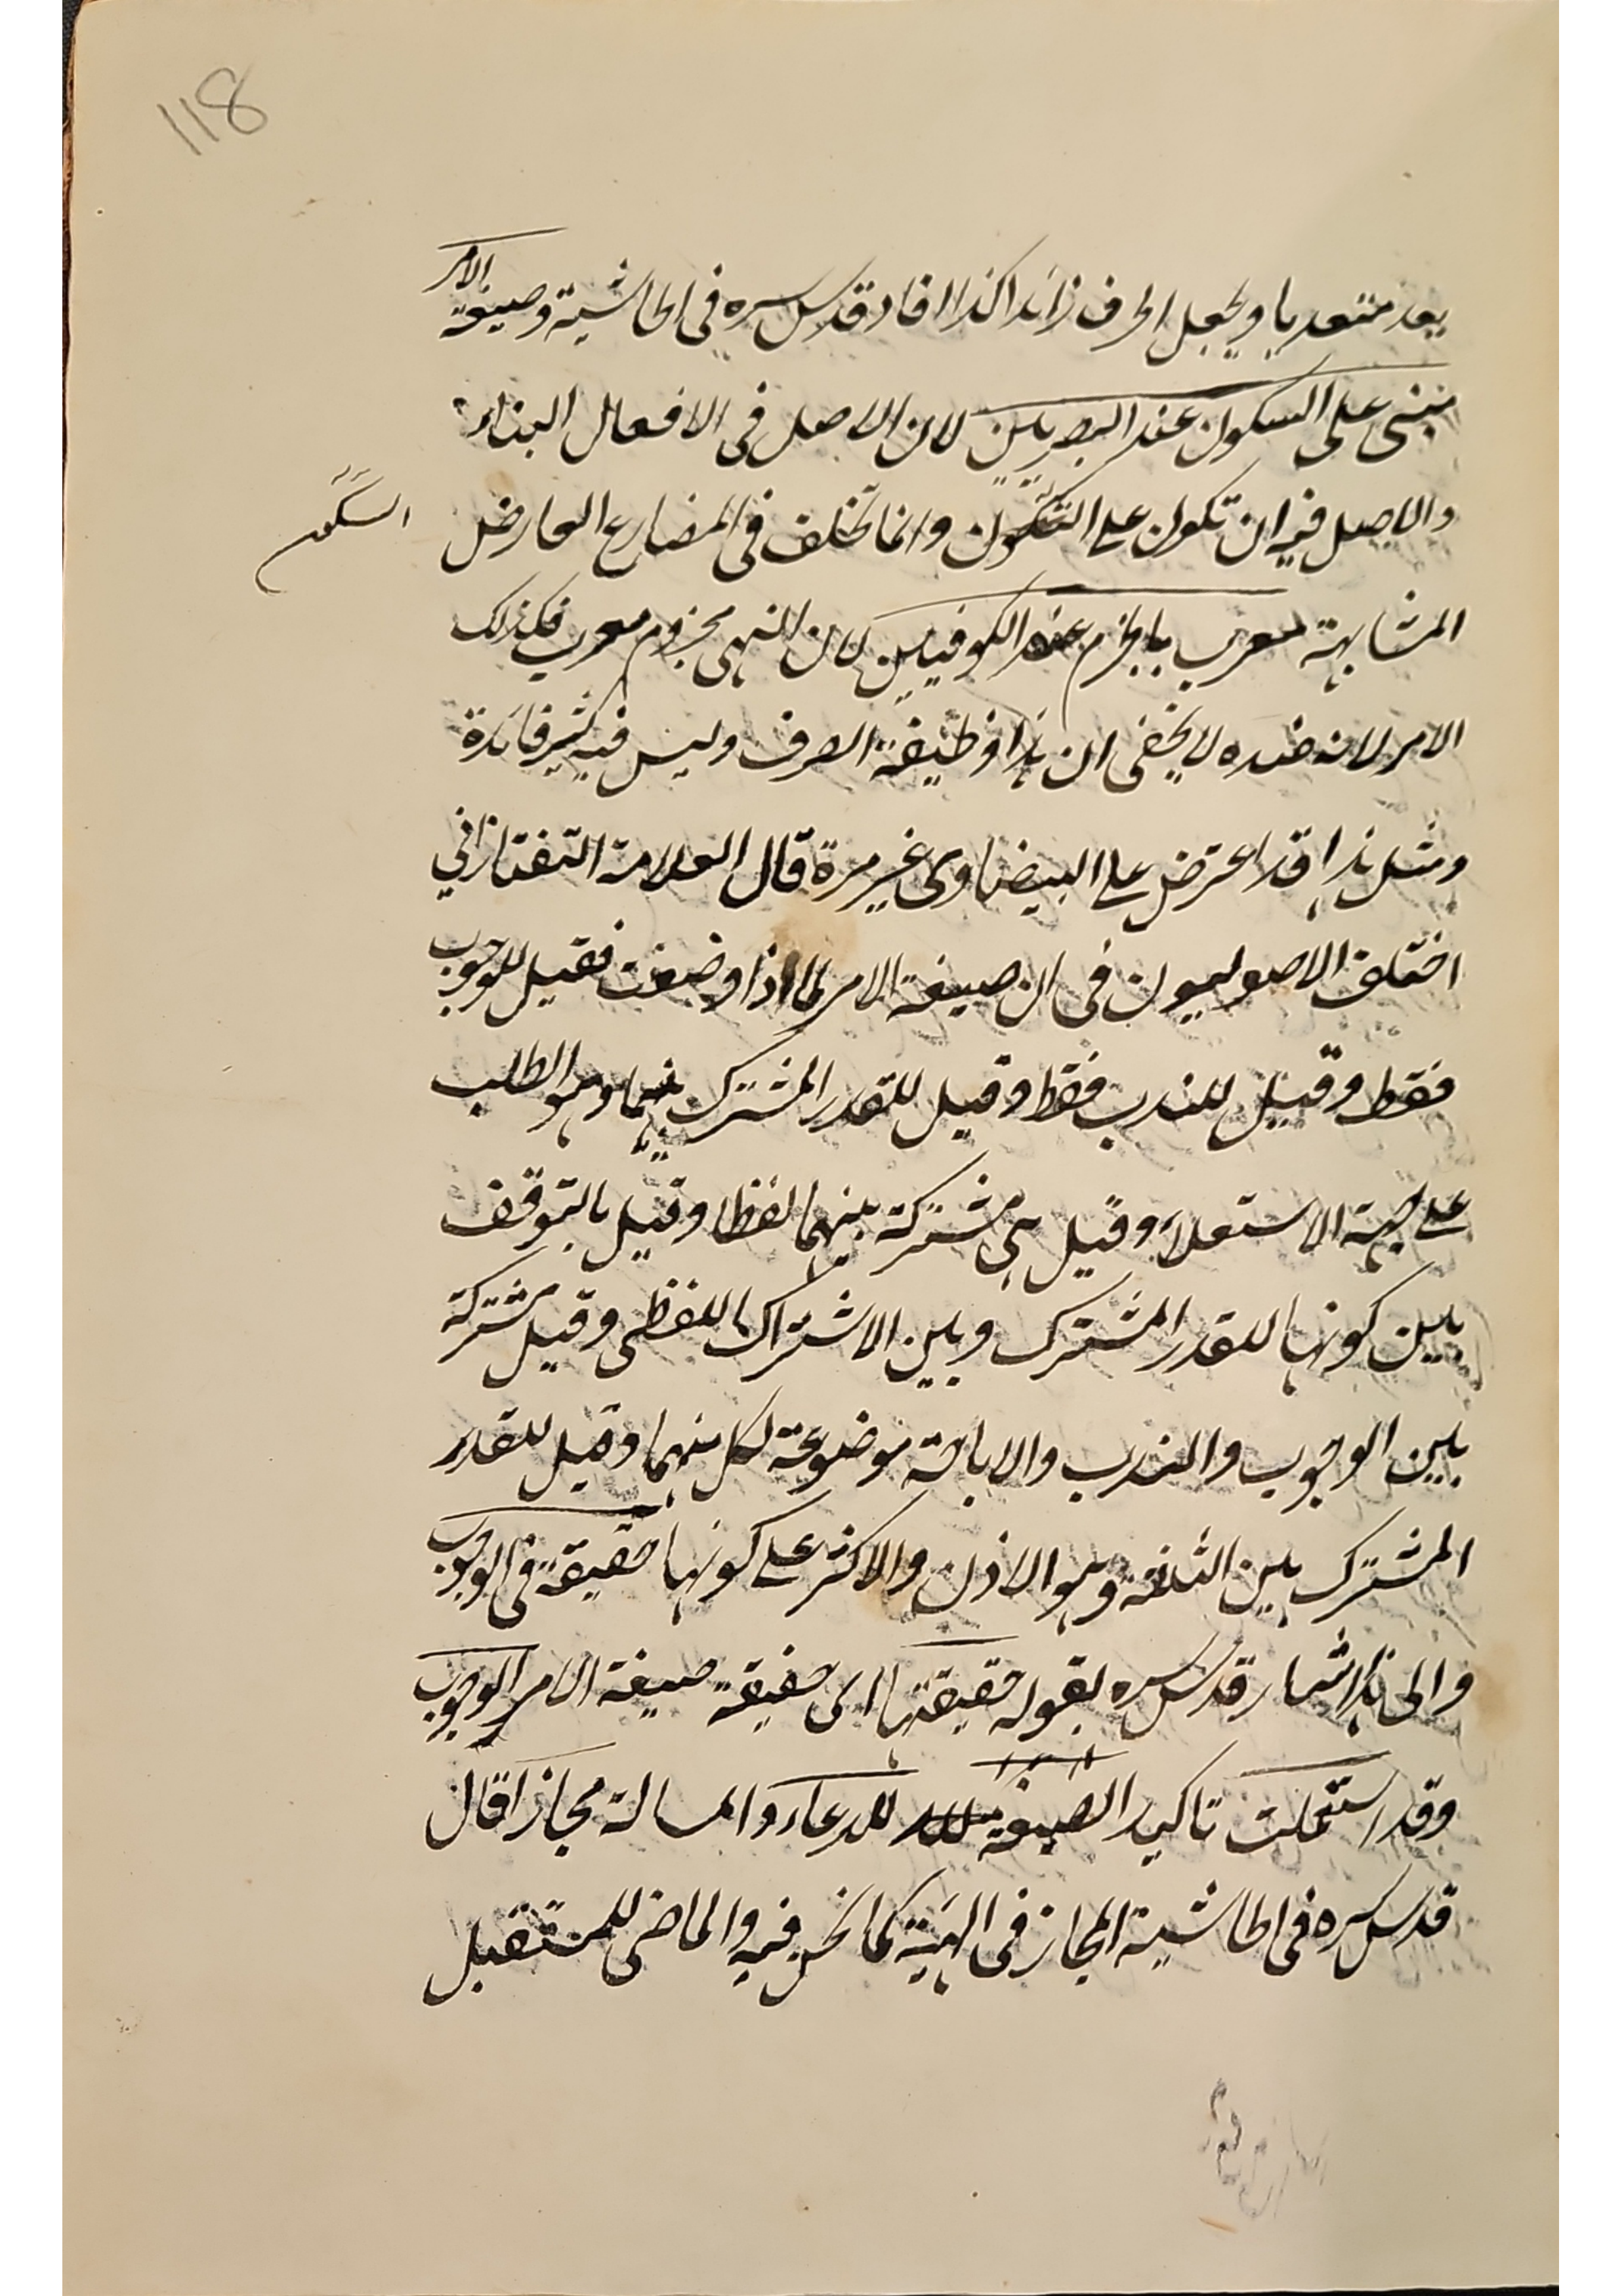 118
يعد متعديا ويجعل الحرف زائدا كذا افاد قدس سره فى الحاشية وصيغة الامر
مبنى على السكون عند البصريين لان الاصل فى الافعال البناء
والاصل فيه ان تكون على السكون وانما تخلف فى المضارع العارض
السكون
المشابهة معرب بالجزم عند الكوفيين لان النهى مجزوم معرب فكذلك
الامر لانه ضده لا يخفى ان هذا وظيفة الصرف وليس فيه كثير فائدة
ومثل هذا قد اعترض على البيضاوى غير مرة قال العلامة التفتازاني
اختلف الاصوليون فى ان صيغة الامر لماذا وضعت فقيل للوجوب
فقط وقيل للندب فقط وقيل للقدر المشترك بينهما وهو الطلب
على جهة الاستعلاء وقيل هى مشتركة بينهما لفظا وقيل بالتوقف
بين كونها للقدر المشترك وبين الاشتراك اللفظى وقيل مشتركة
بين الوجوب والندب والاباحة موضوعة لكل منهما وقيل للقدر
المشترك بين الثلثة وهو الاذن والاكثر على كونها حقيقة فى الوجوب
والى هذا اشار قدس سره بقوله حقيقتها اى حقيقة صيغة الامر الوجوب
وقد استعملت تاكيد الصيغة للدعاء والمسالة مجازا قال
قدس سره فى الحاشية المجاز فى الهيئة كما نحن فيه والماضى للمستقبل